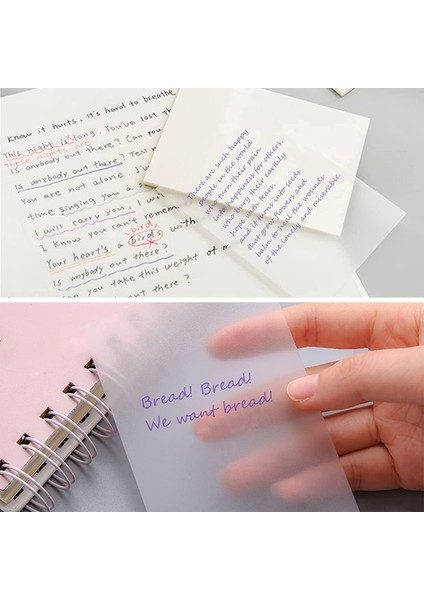 Know it hurts, it's hard to breathe
This night is long. You've lost th
These nights are
Is anybody out there? Can you
Is anybody out there? Tell
You are not alone.
time singing you a
I will carry you. I
I know you can't remem
birdy
Your heart's a bird's with.
Is anybody out there?
n you take this weight of m
There are such happy
people in the world
who turn their pain
into happiness for others,
who bury their earthly
hope with tears,
and it turns into seeds
that grow flowers and
balm to heal the wounds
of the lonely and miserable.
Bread! Bread!
We want bread!